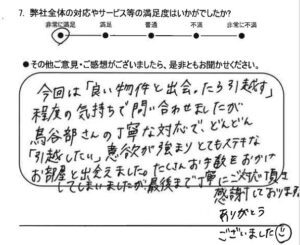 7. 弊社全体の対応やサービス等の満足度はいかがでしたか？
非常に満足 満足 普通 不満 非常に不満
●その他ご意見・ご感想がございましたら、是非ともお聞かせください。
今回は「良い物件と出会ったら引越す」
程度の気持ちで問い合わせましたが
鳥谷部さんの丁寧な対応で、どんどん
「引越したい」意欲が強まりとてもステキな
お部屋と出会えました。たくさんお手数をおかけ
してしまいましたが最後まで丁寧にご対応頂き
感謝しております。
ありがとう
ございました